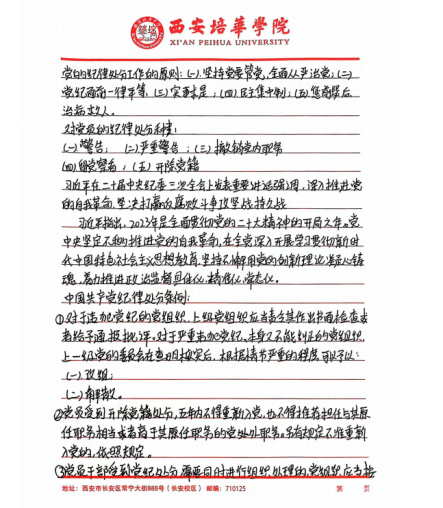 西安培華學院
XI'AN PEIHUA UNIVERSITY
党的纪律处分工作的原则:(一)坚持党要管党,全面从严治党;(二)
党纪面前一律平等 (三)实事求是;(四)民主集中制;(五)惩前毖后
治病救人。
对党员的纪律处分种类:
(一)警告; (二)严重警告;(三)撤销党内职务
(四)留党察看;(五)开除党籍
习近平在二十届中央纪委三次全会上发表重要讲话强调,深入推进党
的自我革命,坚决打赢反腐败斗争攻坚战持久战
习近平指出,2023年是全面贯彻党的二十大精神的开局之年。党
中央坚定不移推进党的自我革命,在全党深入开展学习贯彻新时
代中国特色社会主义思想教育,坚持不懈用党的创新理论凝心铸
魂,着力推进政治监督具体化、精准化、常态化。
中国共产党纪律处分条例:
①对于违犯党纪的党组织,上级党组织应当责令其作出书面检查或
者给予通报批评。对于严重违犯党纪、本身又不能纠正的党组织,
上一级党的委员会在查明核实后,根据情节严重的程度,可予以:
(一)改组;
(二)解散。
②党员受到开除党籍处分,五年内不得重新入党,也不得推荐担任与其原
任职务相当或者高于其原任职务的党外职务。另有规定不准重新
入党的,依照规定。
③党员干部受到党纪处分,需要同时进行组织处理的,党组织应当按
地址:西安市长安区常宁大街888号(长安校区) 邮编:710125 第 页